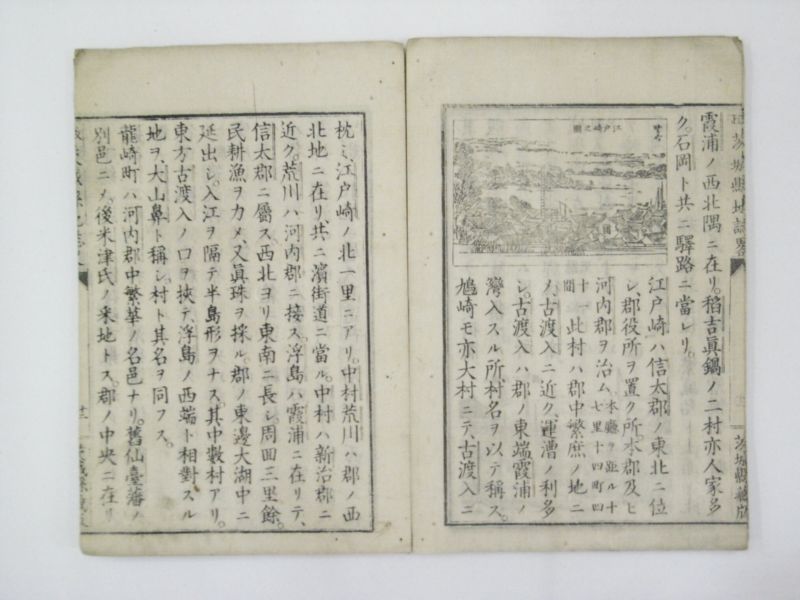 茨城縣地誌畧
茨城縣藏版
霞浦ノ西北隅ニ在リ。稻吉眞鍋ノ二村亦人家多
ク。石岡ト共ニ驛路ニ當レリ。
江戸崎之圖
江戸崎ハ信太郡ノ東北ニ位
シ、郡役所ヲ置ク所。本郡及ヒ
河内郡ヲ治ム本廳ヲ距ル十七里十四町四
十一間此村ハ郡中繁庶ノ地ニ
ノ、古渡入ニ近ク、運漕ノ利多
シ。古渡入ハ郡ノ東端霞浦ノ
灣入スル所村名ヲ以テ稱ス。
鳩崎モ亦大村ニテ、古渡入ニ
枕ミ、江戸崎ノ北一里ニアリ。中村荒川ハ郡ノ西
北地ニ在リ、共ニ濱街道ニ當ル。中村ハ新治郡ニ
近ク。荒川ハ河内郡ニ接ス。浮島ハ霞浦ニ在リテ、
信太郡ニ屬ス、西北ヨリ東南ニ長シ、周回三里餘。
民耕漁ヲ力メ、又眞珠ヲ採ル郡ノ東邊大湖中ニ
延出シ。入江ヲ隔テ半島形ヲナス。其中數村アリ。
東方古渡入ノ口ヲ挾テ、浮島ノ西端ト相對スル
地ヲ、大山鼻ト稱シ、村ト其名ヲ同フス。
龍崎町ハ河内郡中繁華ノ名邑ナリ。舊仙臺藩ノ
別邑ニメ、後米津氏ノ釆地トス。郡ノ中央ニ在リ